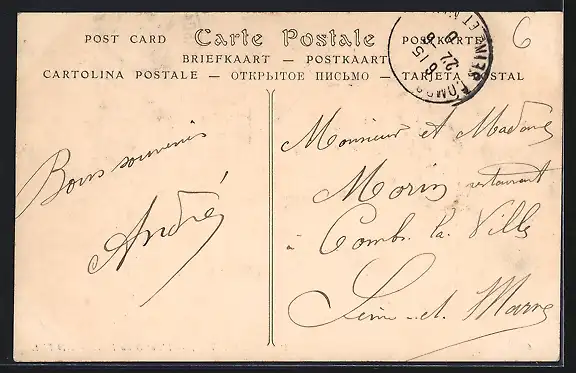 POST CARD Carte Postale POSTKARTE
BRIEFKAART — POSTKAART
CARTOLINA POSTALE — ОТКРЫТОЕ ПИСЬМО — TARJETA POSTAL
6
Bons souvenirs
André
Monsieur et Madame
Morin restaurant
à Combs la Ville
Seine et Marne